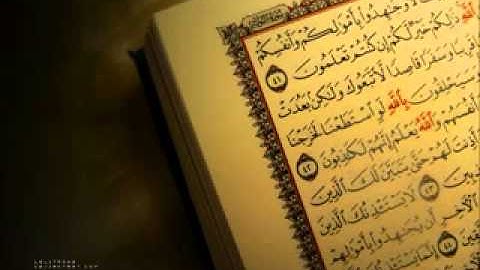 وَجَٰهِدُوا۟ بِأَمْوَٰلِكُمْ وَأَنفُسِكُمْ
ٱللَّهِ ذَٰلِكُمْ خَيْرٌ لَّكُمْ إِن كُنتُمْ تَعْلَمُونَ ٤١
قَرِيبًا وَسَفَرًا قَاصِدًا لَّٱتَّبَعُوكَ وَلَٰكِنۢ بَعُدَتْ
وَسَيَحْلِفُونَ بِٱللَّهِ لَوِ ٱسْتَطَعْنَا لَخَرَجْنَا
أَنفُسَهُمْ وَٱللَّهُ يَعْلَمُ إِنَّهُمْ لَكَٰذِبُونَ ٤٢
أَذِنتَ لَهُمْ حَتَّىٰ يَتَبَيَّنَ لَكَ ٱلَّذِينَ
٤٣ لَا يَسْتَـْٔذِنُكَ ٱلَّذِينَ
ٱلْـَٔاخِرِ أَن يُجَٰهِدُوا۟ بِأَمْوَٰلِهِمْ
٤٤